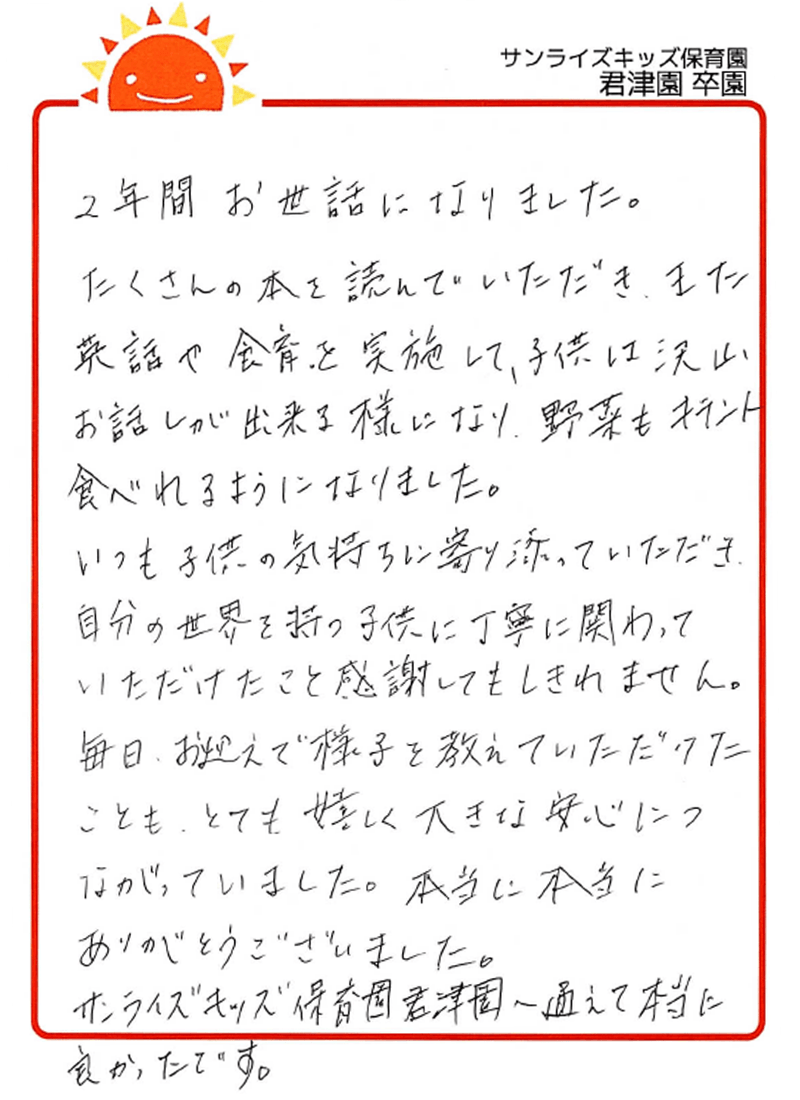 サンライズキッズ保育園
君津園 卒園
2年間 お世話になりました。
たくさんの本を読んでいただき、また
英話や食育を実施して、子供は沢山
お話しが出来る様になり、野菜もキチント
食べれるようになりました。
いつも子供の気持ちに寄り添っていただき、
自分の世界を持つ子供に丁寧に関わって
いただけたこと感謝してもしきれません。
毎日、お迎えで様子を教えていただけた
ことも、とても嬉しく大きな安心につ
ながっていました。本当に本当に
ありがとうございました。
サンライズキッズ保育園君津園へ通えて本当に
良かったです。